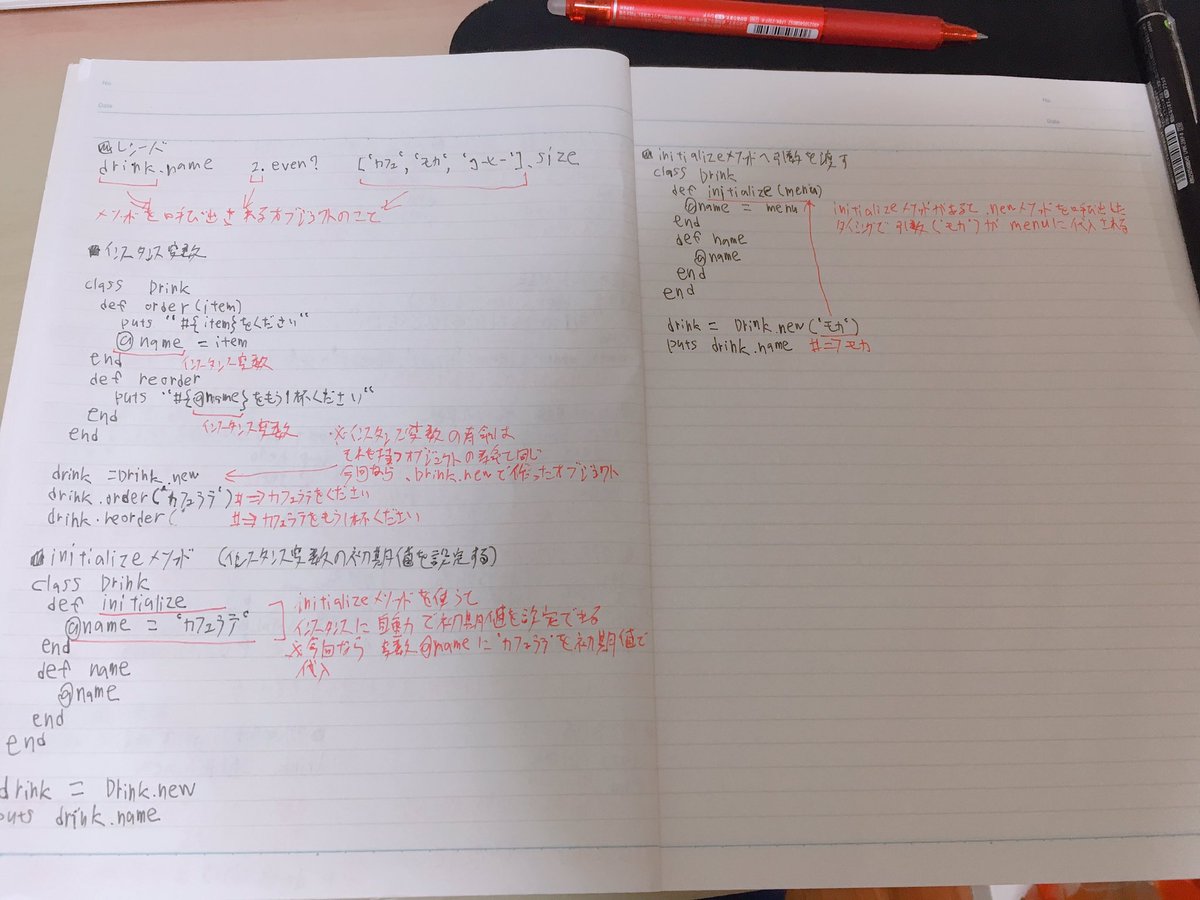 No.
Date
レシーバ
drink.name 2.even? ['カフェ','モカ','コーヒー'].size
メソッドを呼び出されるオブジェクトのこと
インスタンス変数
class Drink
def order(item)
puts "#{item}をください"
@name = item
end インスタンス変数
def reorder
puts "#{@name}をもう1杯ください"
end インスタンス変数
end
※インスタンス変数の寿命は
それを持つオブジェクトの寿命と同じ
今回なら、Drink.newで作ったオブジェクト
drink = Drink.new
drink.order('カフェラテ') #=>カフェラテをください
drink.reorder( #=>カフェラテをもう1杯ください
initializeメソッド (インスタンス変数の初期値を設定する)
class Drink
def initialize
@name = 'カフェラテ'
end
initializeメソッドを使って
インスタンスに自動で初期値を設定できる
※今回なら 変数@nameに'カフェラテ'を初期値で
代入
def name
@name
end
end
drink = Drink.new
puts drink.name
No.
Date
initializeメソッドへ引数を渡す
class Drink
def initialize(menu)
@name = menu
end
def name
@name
end
end
initializeメソッドがあると.newメソッドを呼び出した
タイミングで引数('モカ')がmenuに代入される
drink = Drink.new('モカ')
puts drink.name #=>モカ